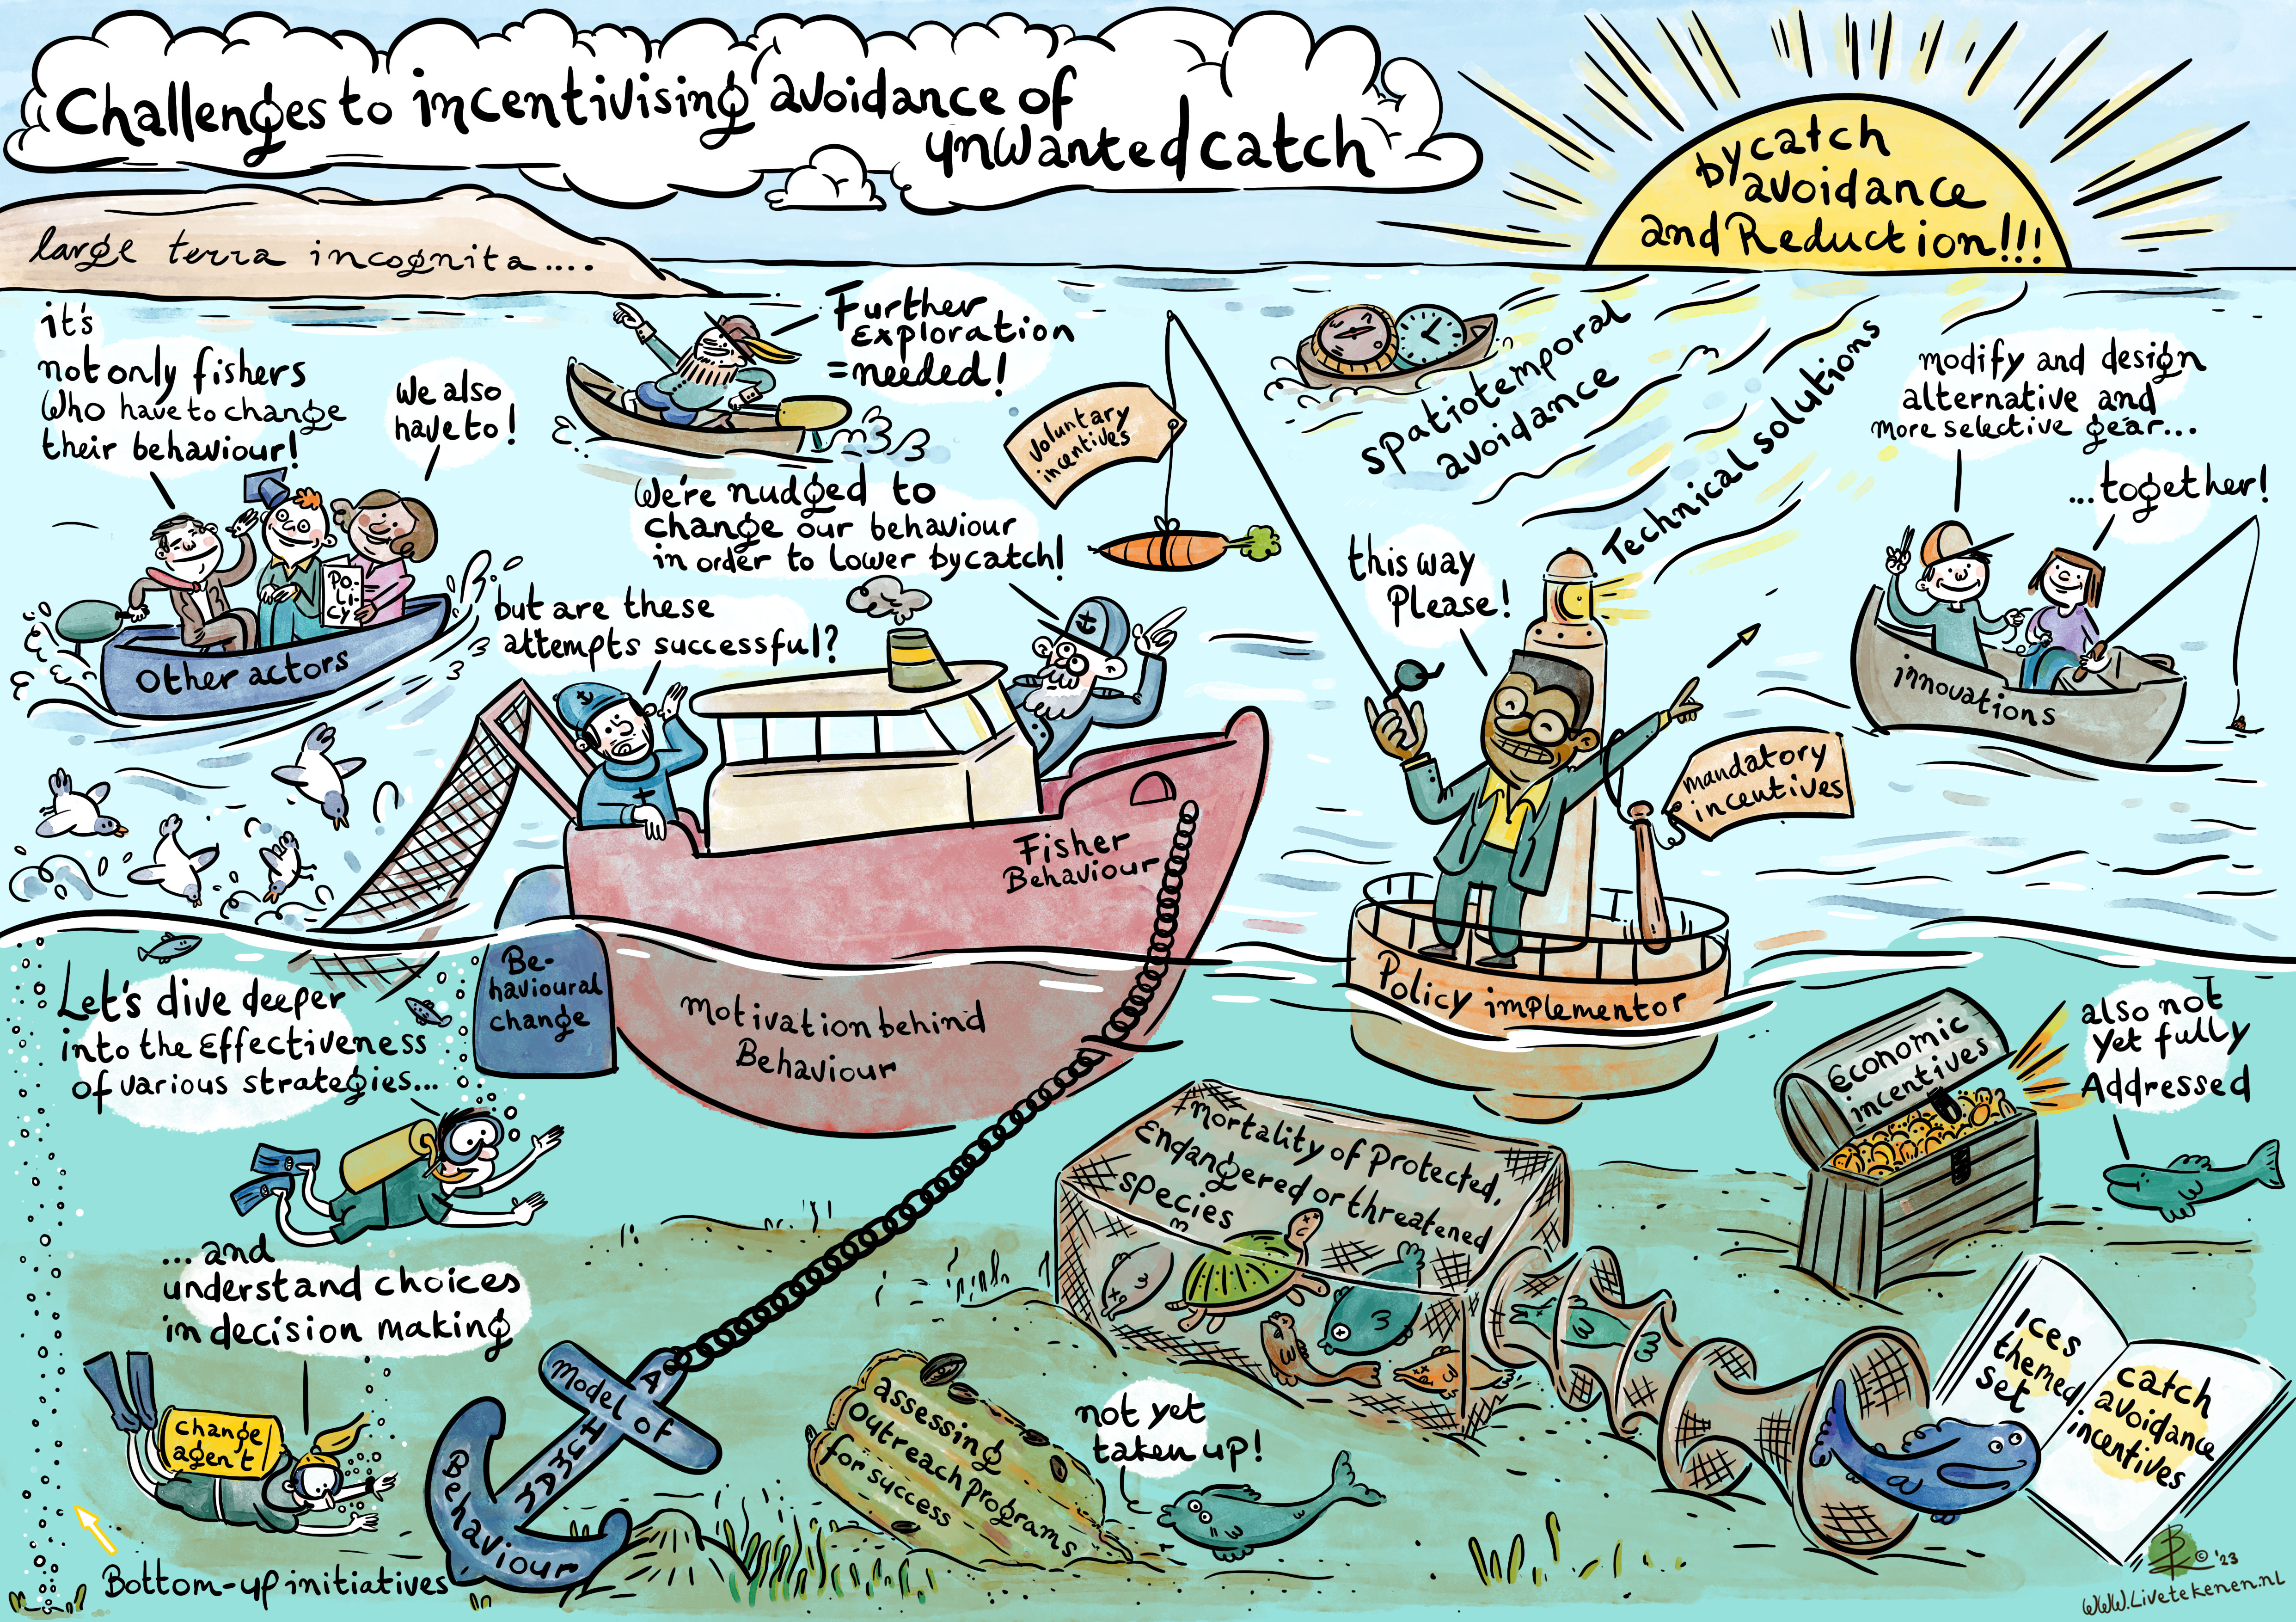 Challenges to incentivising avoidance of
unwanted catch
bycatch
avoidance
and Reduction!!!
large terra incognita....
it's
not only fishers
who have to change
their behaviour!
we also
have to!
Further
Exploration
=needed!
voluntary
incentives
spatiotemporal
avoidance
Technical solutions
modify and design
alternative and
more selective gear...
...together!
We're nudged to
change our behaviour
in order to lower bycatch!
but are these
attempts successful?
this way
Please!
Po-
li-
cy
Other actors
innovations
mandatory
incentives
Fisher
Behaviour
Policy implementor
Be-
havioural
change
Motivation behind
Behaviour
Let's dive deeper
into the Effectiveness
of various strategies...
Economic
incentives
also not
yet fully
Addressed
mortality of Protected,
Endangered or threatened
species
...and
understand choices
in decision making
change
agent
Bottom-up initiatives
A
Model of
Human
Behaviour
assessing
outreach programs
for success
not yet
taken up!
ICES
themed
set
catch
avoidance
incentives
© '23
www.Livetekenen.nl